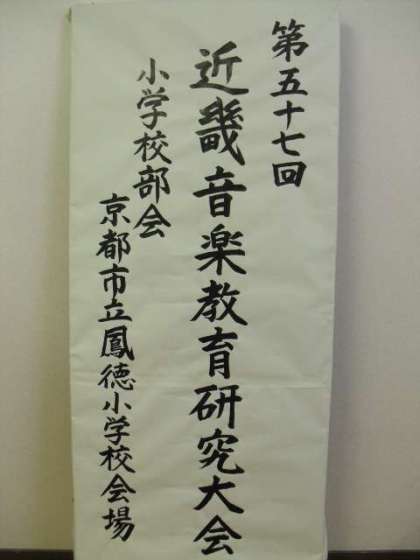 第五十七回
近畿音楽教育研究大会
小学校部会
京都市立鳳徳小学校会場